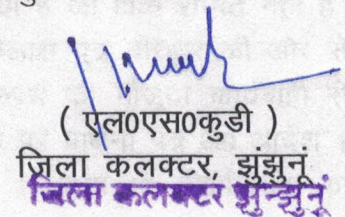 ( एल0एस0कुडी )
ज़िला कलक्टर, झुंझुनूं
जिला कलक्टर झुन्झुनूं